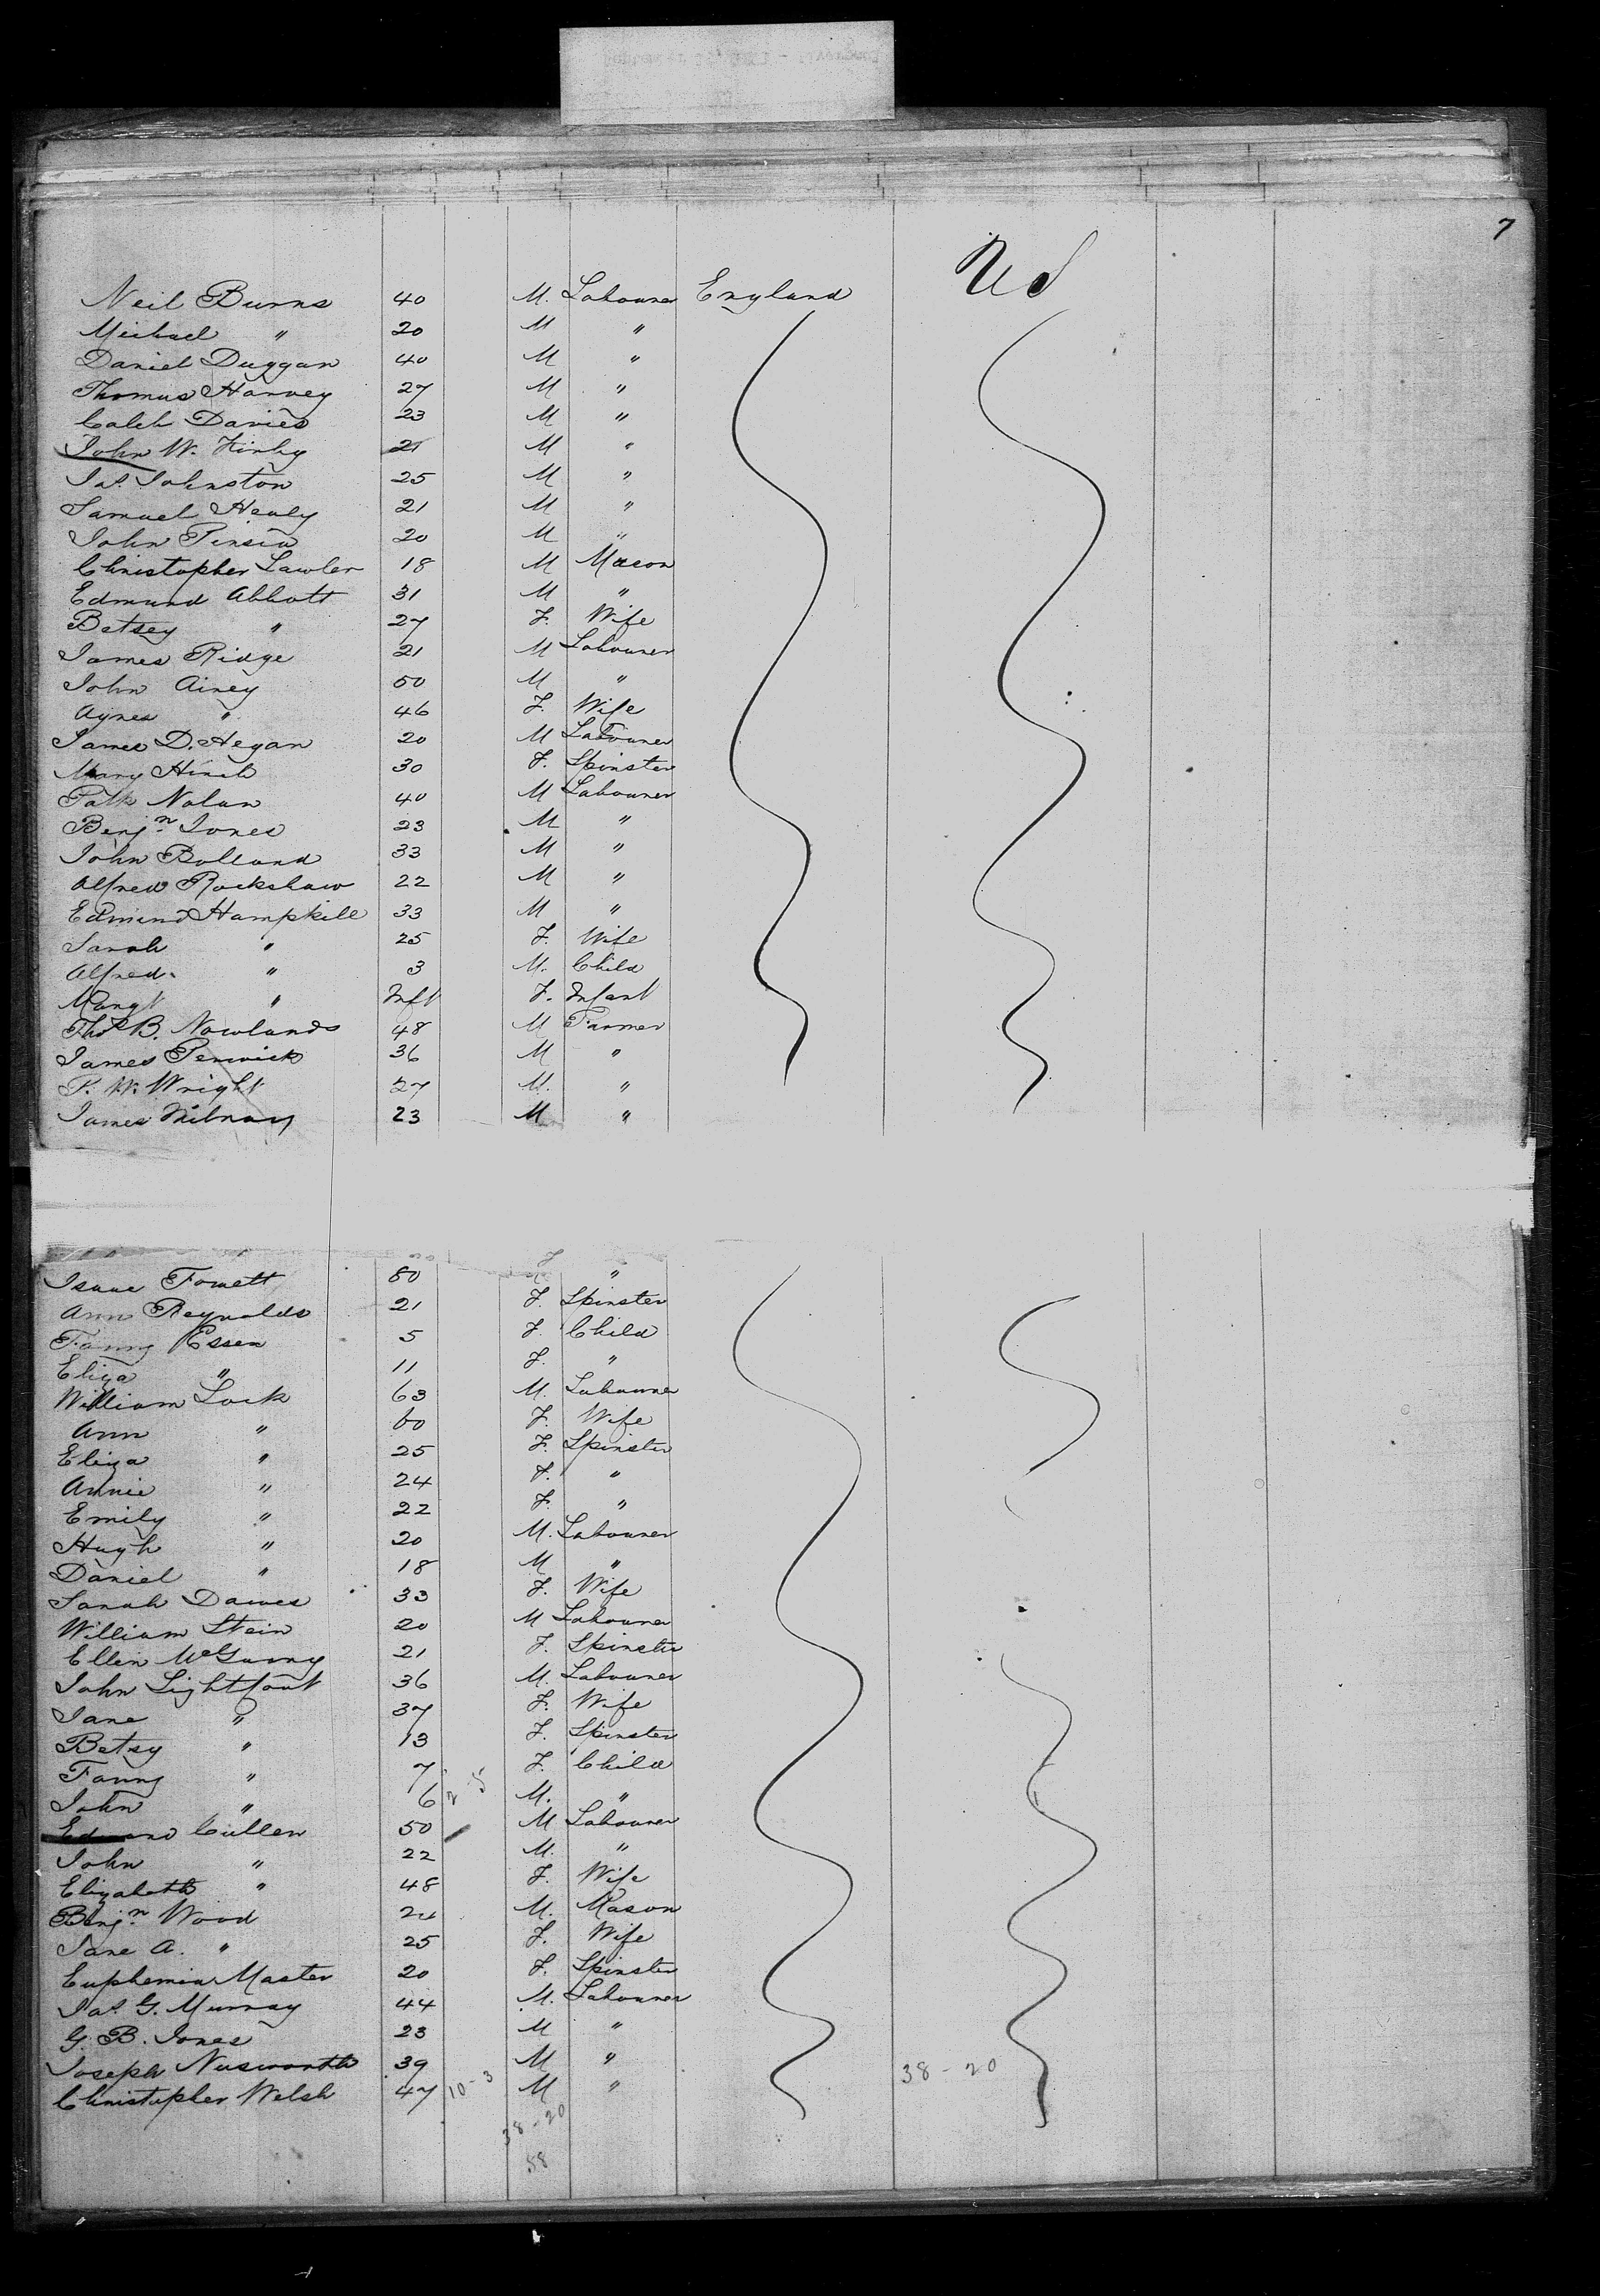 7
Neil Burns 40 M. Labourer England U S
Michael " 20 M "
Daniel Duggan 40 M "
Thomas Harvey 27 M "
Caleb Davies 23 M "
John W. Kirby 21 M "
Jas. Johnston 25 M "
Samuel Healy 21 M "
John 20 M "
Christopher Lawler 18 M Mason
Edmund Abbott 31 M "
Betsey " 27 F. Wife
James Ridge 21 M Labourer
John Airey 50 M "
Agnes " 46 F. Wife
James D. Hegan 20 M Labourer
Mary 30 F. Spinster
Patk Nolan 40 M Labourer
Benjn. Jones 23 M "
John Bolland 33 M "
Alfred Rockshaw 22 M "
Edmund Hampkill 33 M "
Sarah " 25 F. Wife
Alfred " 3 M. Child
Margt " Inft F. Infant
Thos B. Nowlands 48 M Farmer
James 36 M "
Wright 27 M. "
James 23 M "
Isaac "
Ann Reynolds 21 F. Spinster
Fanny Essen 5 F. Child
Eliza " 11 F. "
William Lock 63 M. Labourer
Ann " 60 F. Wife
Eliza " 25 F. Spinster
Annie " 24 F. "
Emily " 22 F. "
Hugh " 20 M. Labourer
Daniel " 18 M "
Sarah Dawes 33 F. Wife
William Stein 20 M Labourer
Ellen 21 F. Spinster
John Lightfoot 36 M. Labourer
Jane " 37 F. Wife
Betsy " 13 F. Spinster
Fanny " 7 F. Child
John " 6 2 5 M. "
Cullen 50 M Labourer
John " 22 M. "
Elizabeth " 48 F. Wife
Benjn. Wood 24 M. Mason
Jane A. " 25 F. Wife
Euphemia Master 20 F. Spinster
Jas. G. Murray 44 M. Labourer
G. B. Jones 23 M "
Joseph Nusworth 39 M "
Christopher Welsh 47 10-3 M "
38-20
38-20
58